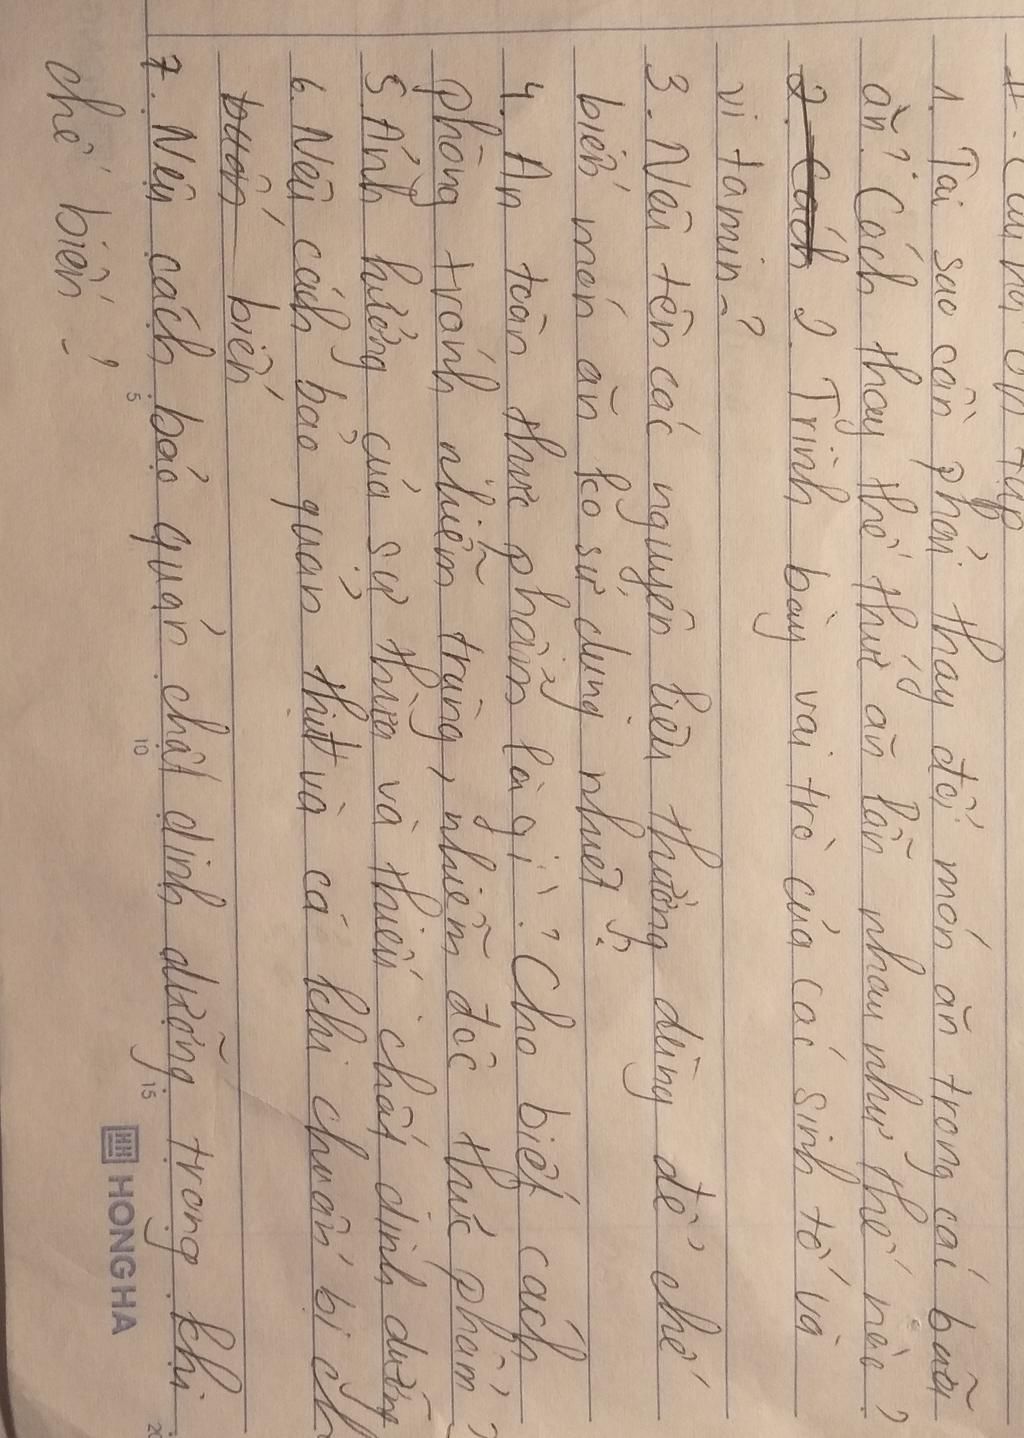 1. Tại sao cần phải thay đổi món ăn trong các bữa
ăn? Cách thay thế thức ăn lẫn nhau như thế nào?
2. Cách 2. Trình bày vai trò của các sinh tố và
vi tamin?
3. Nêu tên các nguyên liệu thường dùng để chế
biến món ăn ko sử dụng nhiệt?
4. An toàn thực phẩm là gì? Cho biết cách
phòng tránh nhiễm trùng, nhiễm độc thực phẩm?
5. Ảnh hưởng của sự thừa và thiếu chất dinh dưỡng
6. Nêu cách bảo quản thịt và cá khi chuẩn bị ch
biến
7. Nêu cách bảo quản chất dinh dưỡng trong khi
chế biến?
5
10
15
20
HH HONG HA